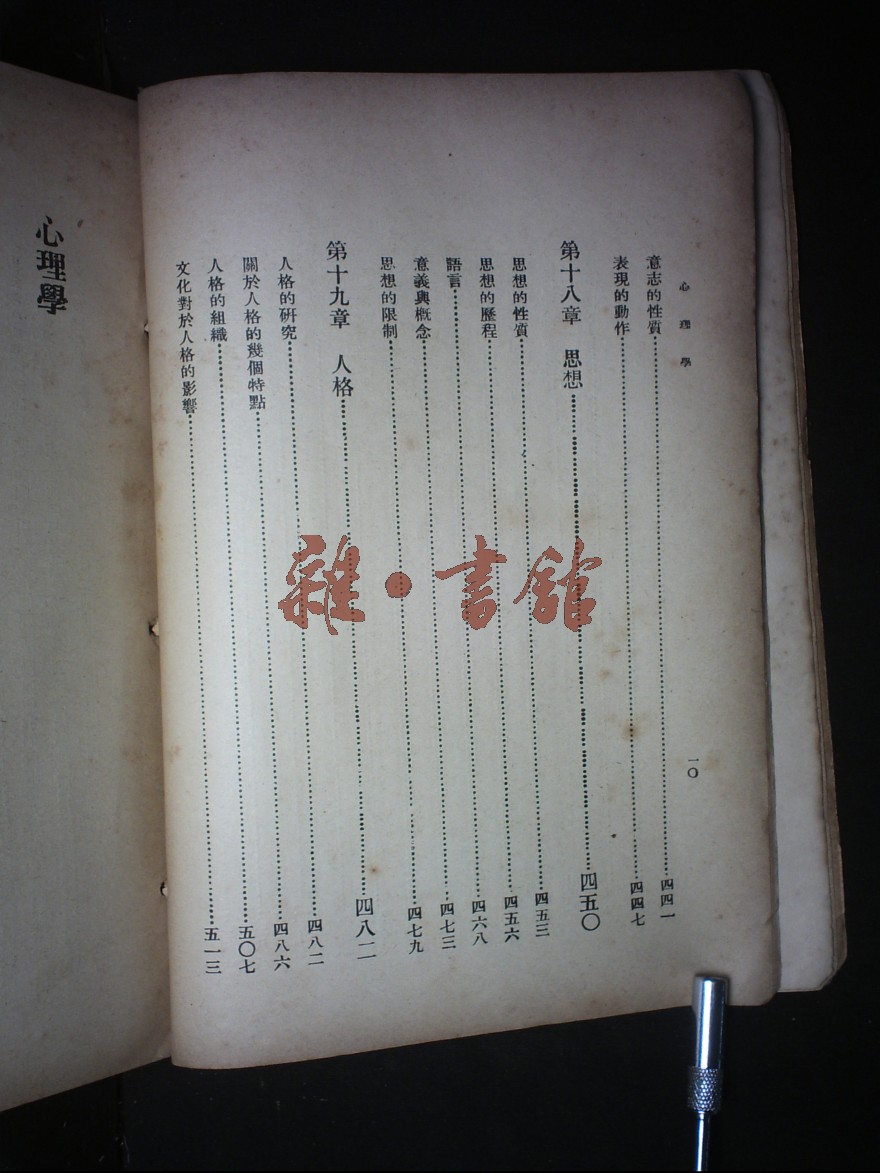 心理學
一〇
意志的性質……四四一
表現的動作……四四七
第十八章 思想……四五〇
思想的性質……四五三
思想的歷程……四五六
語言……四六八
意義與概念……四七三
思想的限制……四七九
第十九章 人格……四八二
人格的研究……四八二
關於人格的幾個特點……四八六
人格的組織……五〇七
文化對於人格的影響……五一三
心理學
雜·書館